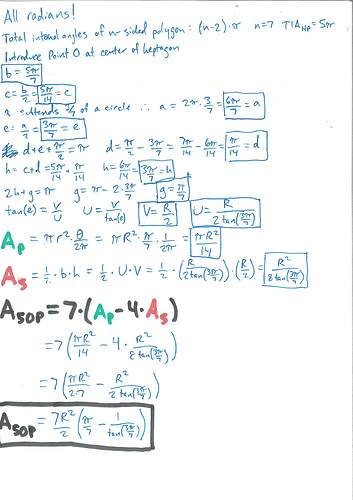 All radians!
Total internal angles of n-sided polygon: (n-2)·π n=7 TIA_HP = 5π
Introduce Point O at center of heptagon
b = 5π/7
c = b/2 = 5π/14 = c
a subtends 3/7 of a circle ∴ a = 2π·3/7 = 6π/7 = a
e = a/2 = 3π/7 = e
d+e+π/2 = π d = π/2 - 3π/7 = 7π/14 - 6π/14 = π/14 = d
h = c+d = 5π/14 + π/14 h = 6π/14 = 3π/7 = h
2h+g = π g = π - 2·3π/7 g = π/7
tan(e) = V/U U = V/tan(e) V = R/2 U = R/(2tan(3π/7))
A_P = πr²·θ/2π = πR²·π/7·1/2π = πR²/14
A_S = 1/2·b·h = 1/2·U·V = 1/2·(R/(2tan(3π/7)))·(R/2) = R²/(8tan(3π/7))
A_SOP = 7·(A_P - 4·A_S)
= 7(πR²/14 - 4·R²/(8tan(3π/7)))
= 7(πR²/(2·7) - R²/(2tan(3π/7)))
A_SOP = 7R²/2 (π/7 - 1/tan(3π/7))